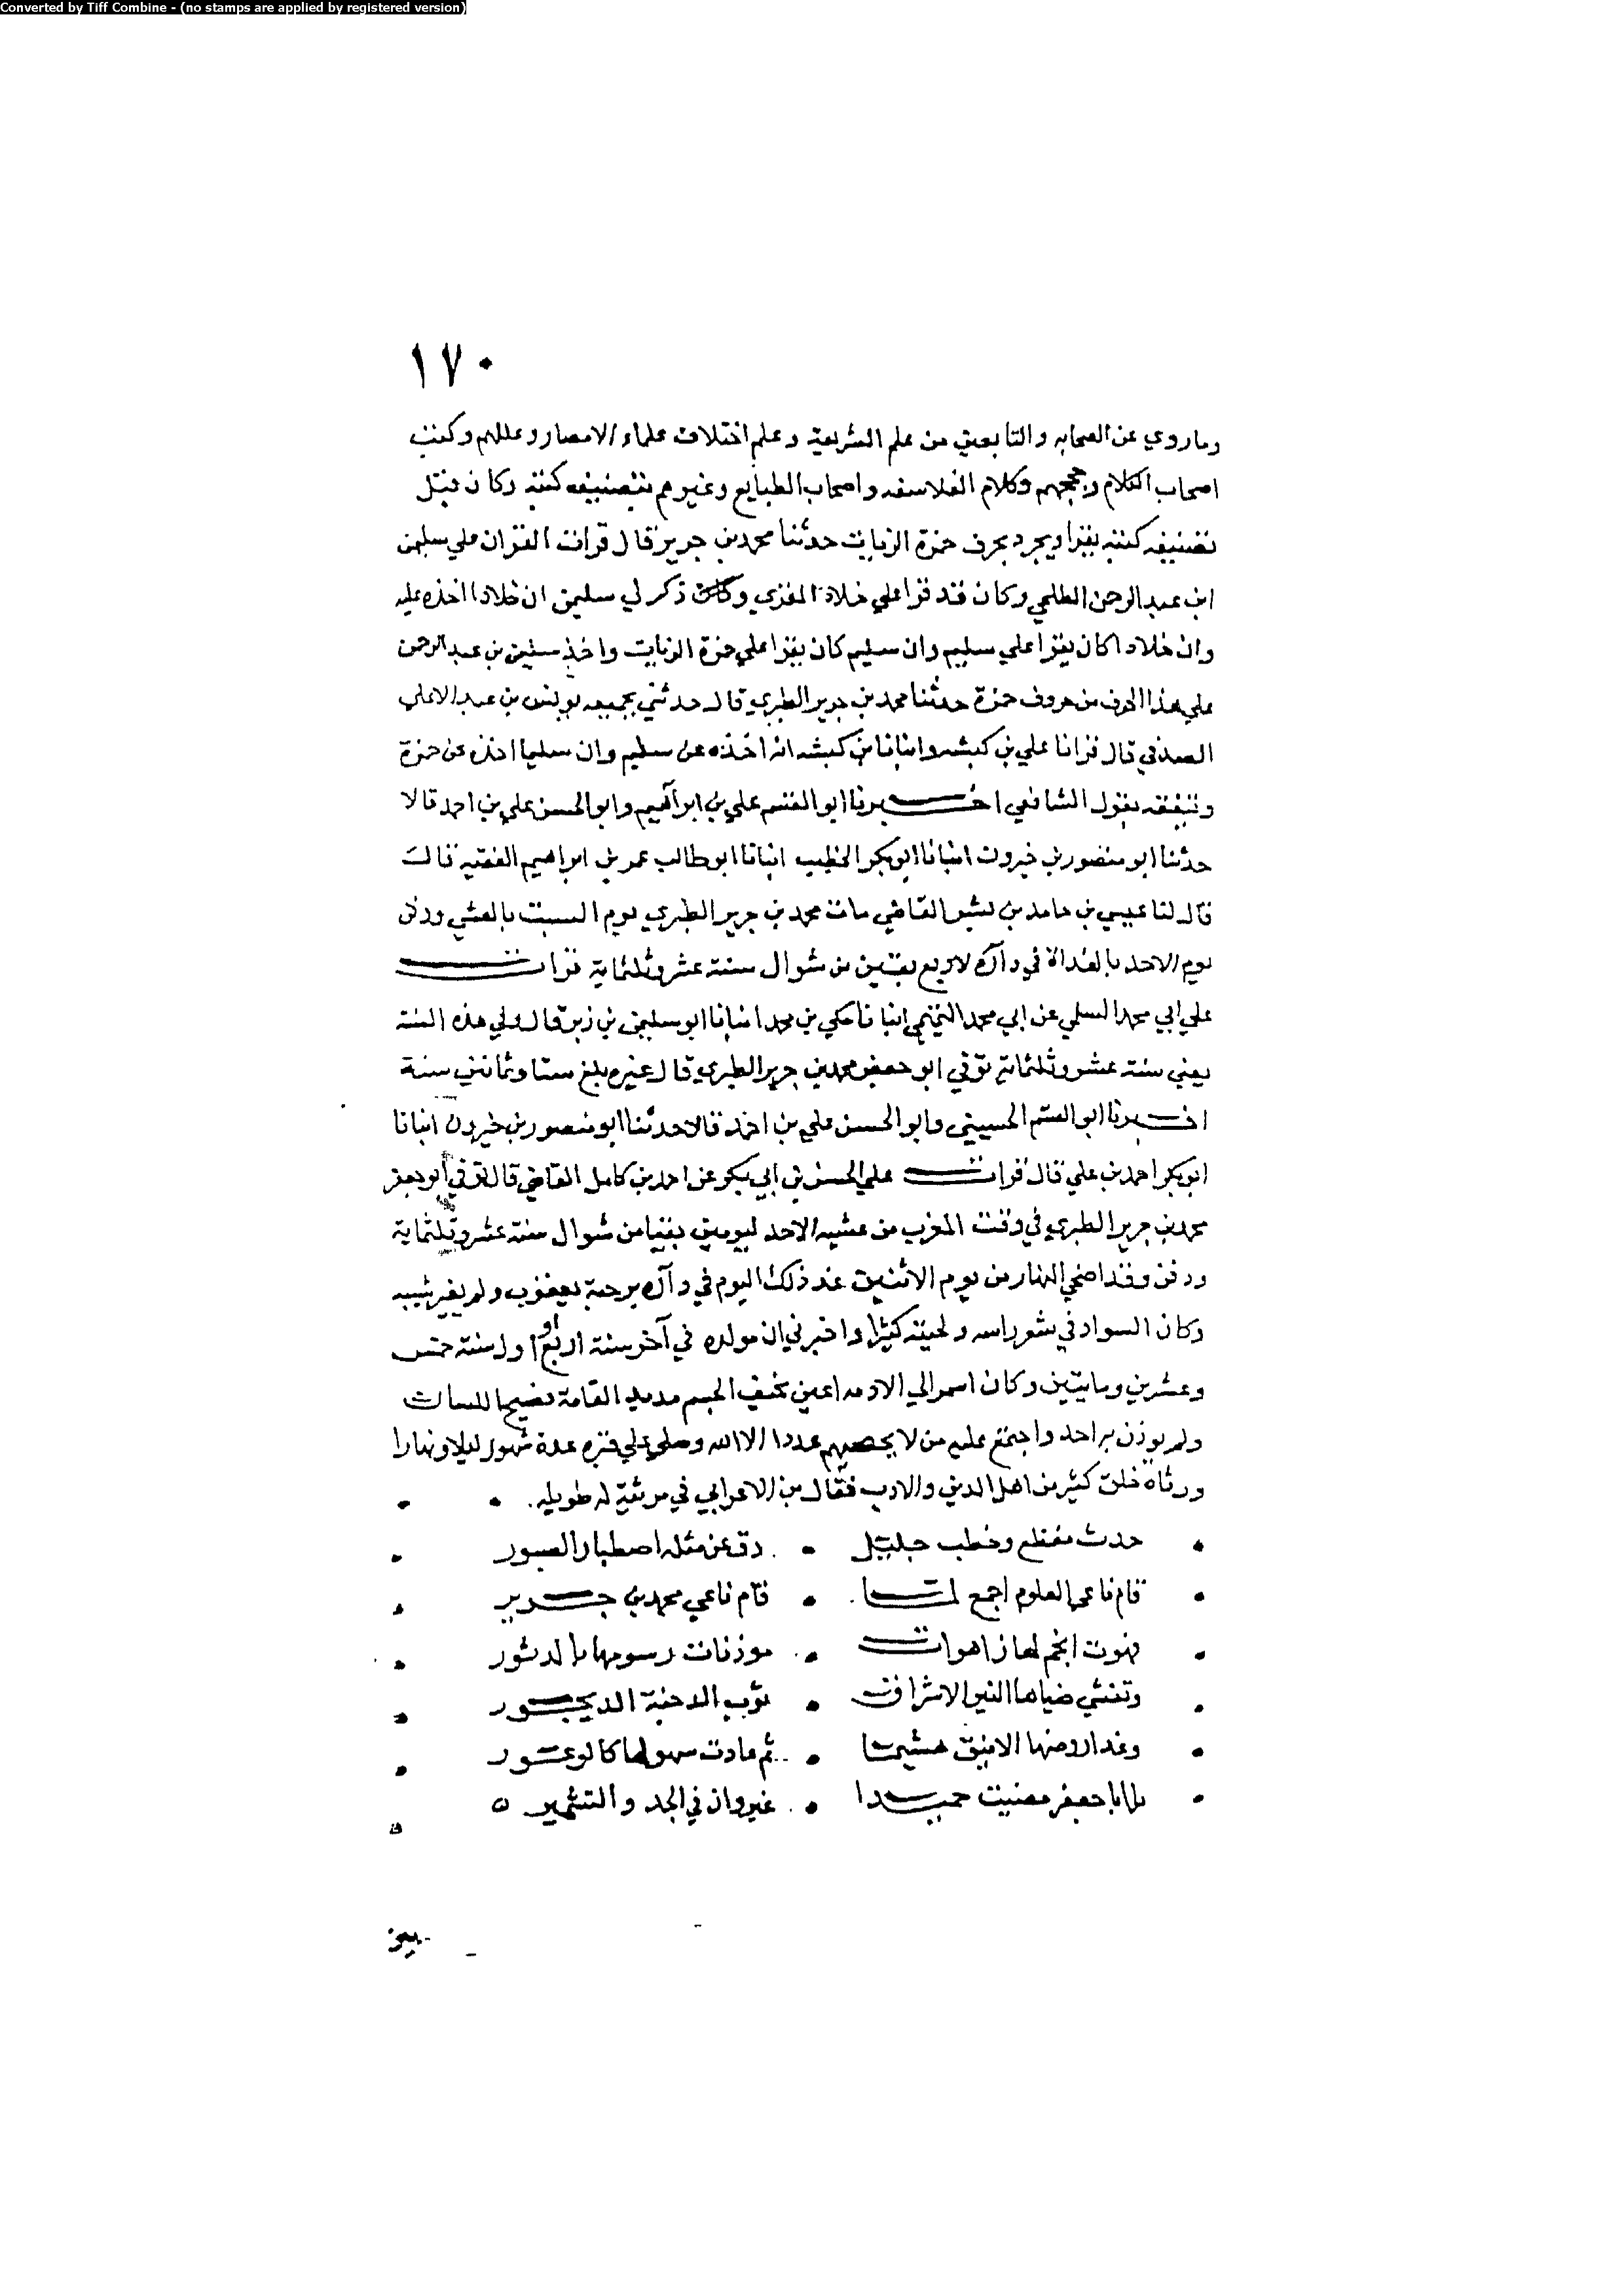 Converted by Tiff Combine - (no stamps are applied by registered version)
١٧٠
وما روي عن الصحابه والتابعين من علم الشريعة وعلم اختلاف علماء الامصار وعللهم وكتب
اصحاب الكلام وحججهم وكلام الفلاسفه واصحاب الطبايع وغيرهم بتصنيفه كتبه وكان قبل
تصنيفه كتبه يقرا ويجرد بحرف حمزة الزيات حدثنا محمد بن جرير قال قرات القران علي سليمن
ابن عبد الرحمن الطلحي وكان قد قرا علي خلاد المقري وكان ذكر لي سليمن ان خلادا اخذه عليه
وان خلادا كان يقرا علي سليم وان سليم كان يقرا علي حمزة الزيات واخذ سليمن بن عبد الرحمن
علي هذا الحرف من حروف حمزة حدثنا محمد بن جرير الطبري قال حدثني بجميعه يونس بن عبد الاعلي
الصدفي قال قرانا علي بن كبشه وانبانا بن كبشه انه اخذه عن سليم وان سليما اخذه عن حمزة
وتفقه بقول الشافعي اخبرنا ابو القسم علي بن ابراهيم وابو الحسن علي بن احمد قالا
حدثنا ابو منصور بن خيرون انبانا ابو بكر الخطيب انبانا ابو طالب عمر بن ابراهيم الفقيه قال
قال لنا عيسي بن حامد بن بشر القاضي مات محمد بن جرير الطبري يوم السبت بالعشي ودفن
يوم الاحد بالغداة في داره لاربع بقين من شوال سنة عشر وثلثماية قرات
علي ابي محمد السلمي عن ابي محمد التميمي انبا نا مكي بن محمد انبانا ابو سليمن بن زبر قال وفي هذه السنة
يعني سنة عشر وثلثماية توفي ابو جعفر محمد بن جرير الطبري قال غيره بلغ ستا وثمانين سنة
اخبرنا ابو القسم الحسيني وابو الحسن علي بن احمد قالا حدثنا ابو منصور بن خيرون انبانا
ابو بكر احمد بن علي قال قرات علي الحسن بن ابي بكر عن احمد بن كامل القاضي قال توفي ابو جعفر
محمد بن جرير الطبري في وقت المغرب من عشيه الاحد ليومين بقيا من شوال سنة عشر وثلثماية
ودفن وقد اضحي النهار من يوم الاثنين غد ذلك اليوم في داره برحبة يعقوب ولم يغير شيبه
وكان السواد في شعر راسه ولحيته كثيرا واخبرني ان مولده في آخر سنة اربع او اول سنة خمس
وعشرين ومايتين وكان اسمر الي الادمه اعين نحيف الجسم مديد القامة فصيح اللسان
ولم يوذن به احد واجتمع عليه من لا يحصيهم عددا الا الله وصلي علي قبره عدة شهور ليلا ونهارا
ورثاه خلق كثير من اهل الدين والادب فقال بن الاعرابي في مرثية له طويله
حدث مفظع وخطب جليل • دق عن مثله اصطبار الصبور
قام ناعي العلوم اجمع لما • قام ناعي محمد بن جرير
فهوت انجم لها زاهرات • موذنات رسومها بالدثور
وتغشي ضياها النير الاشراق • ثوب الدجنة الديجور
وغدا روضها الانيق هشيما • ثم عادت سهولها كالوعور
يا ابا جعفر مضيت حميدا • غير وان في الجد والتشمير
بين